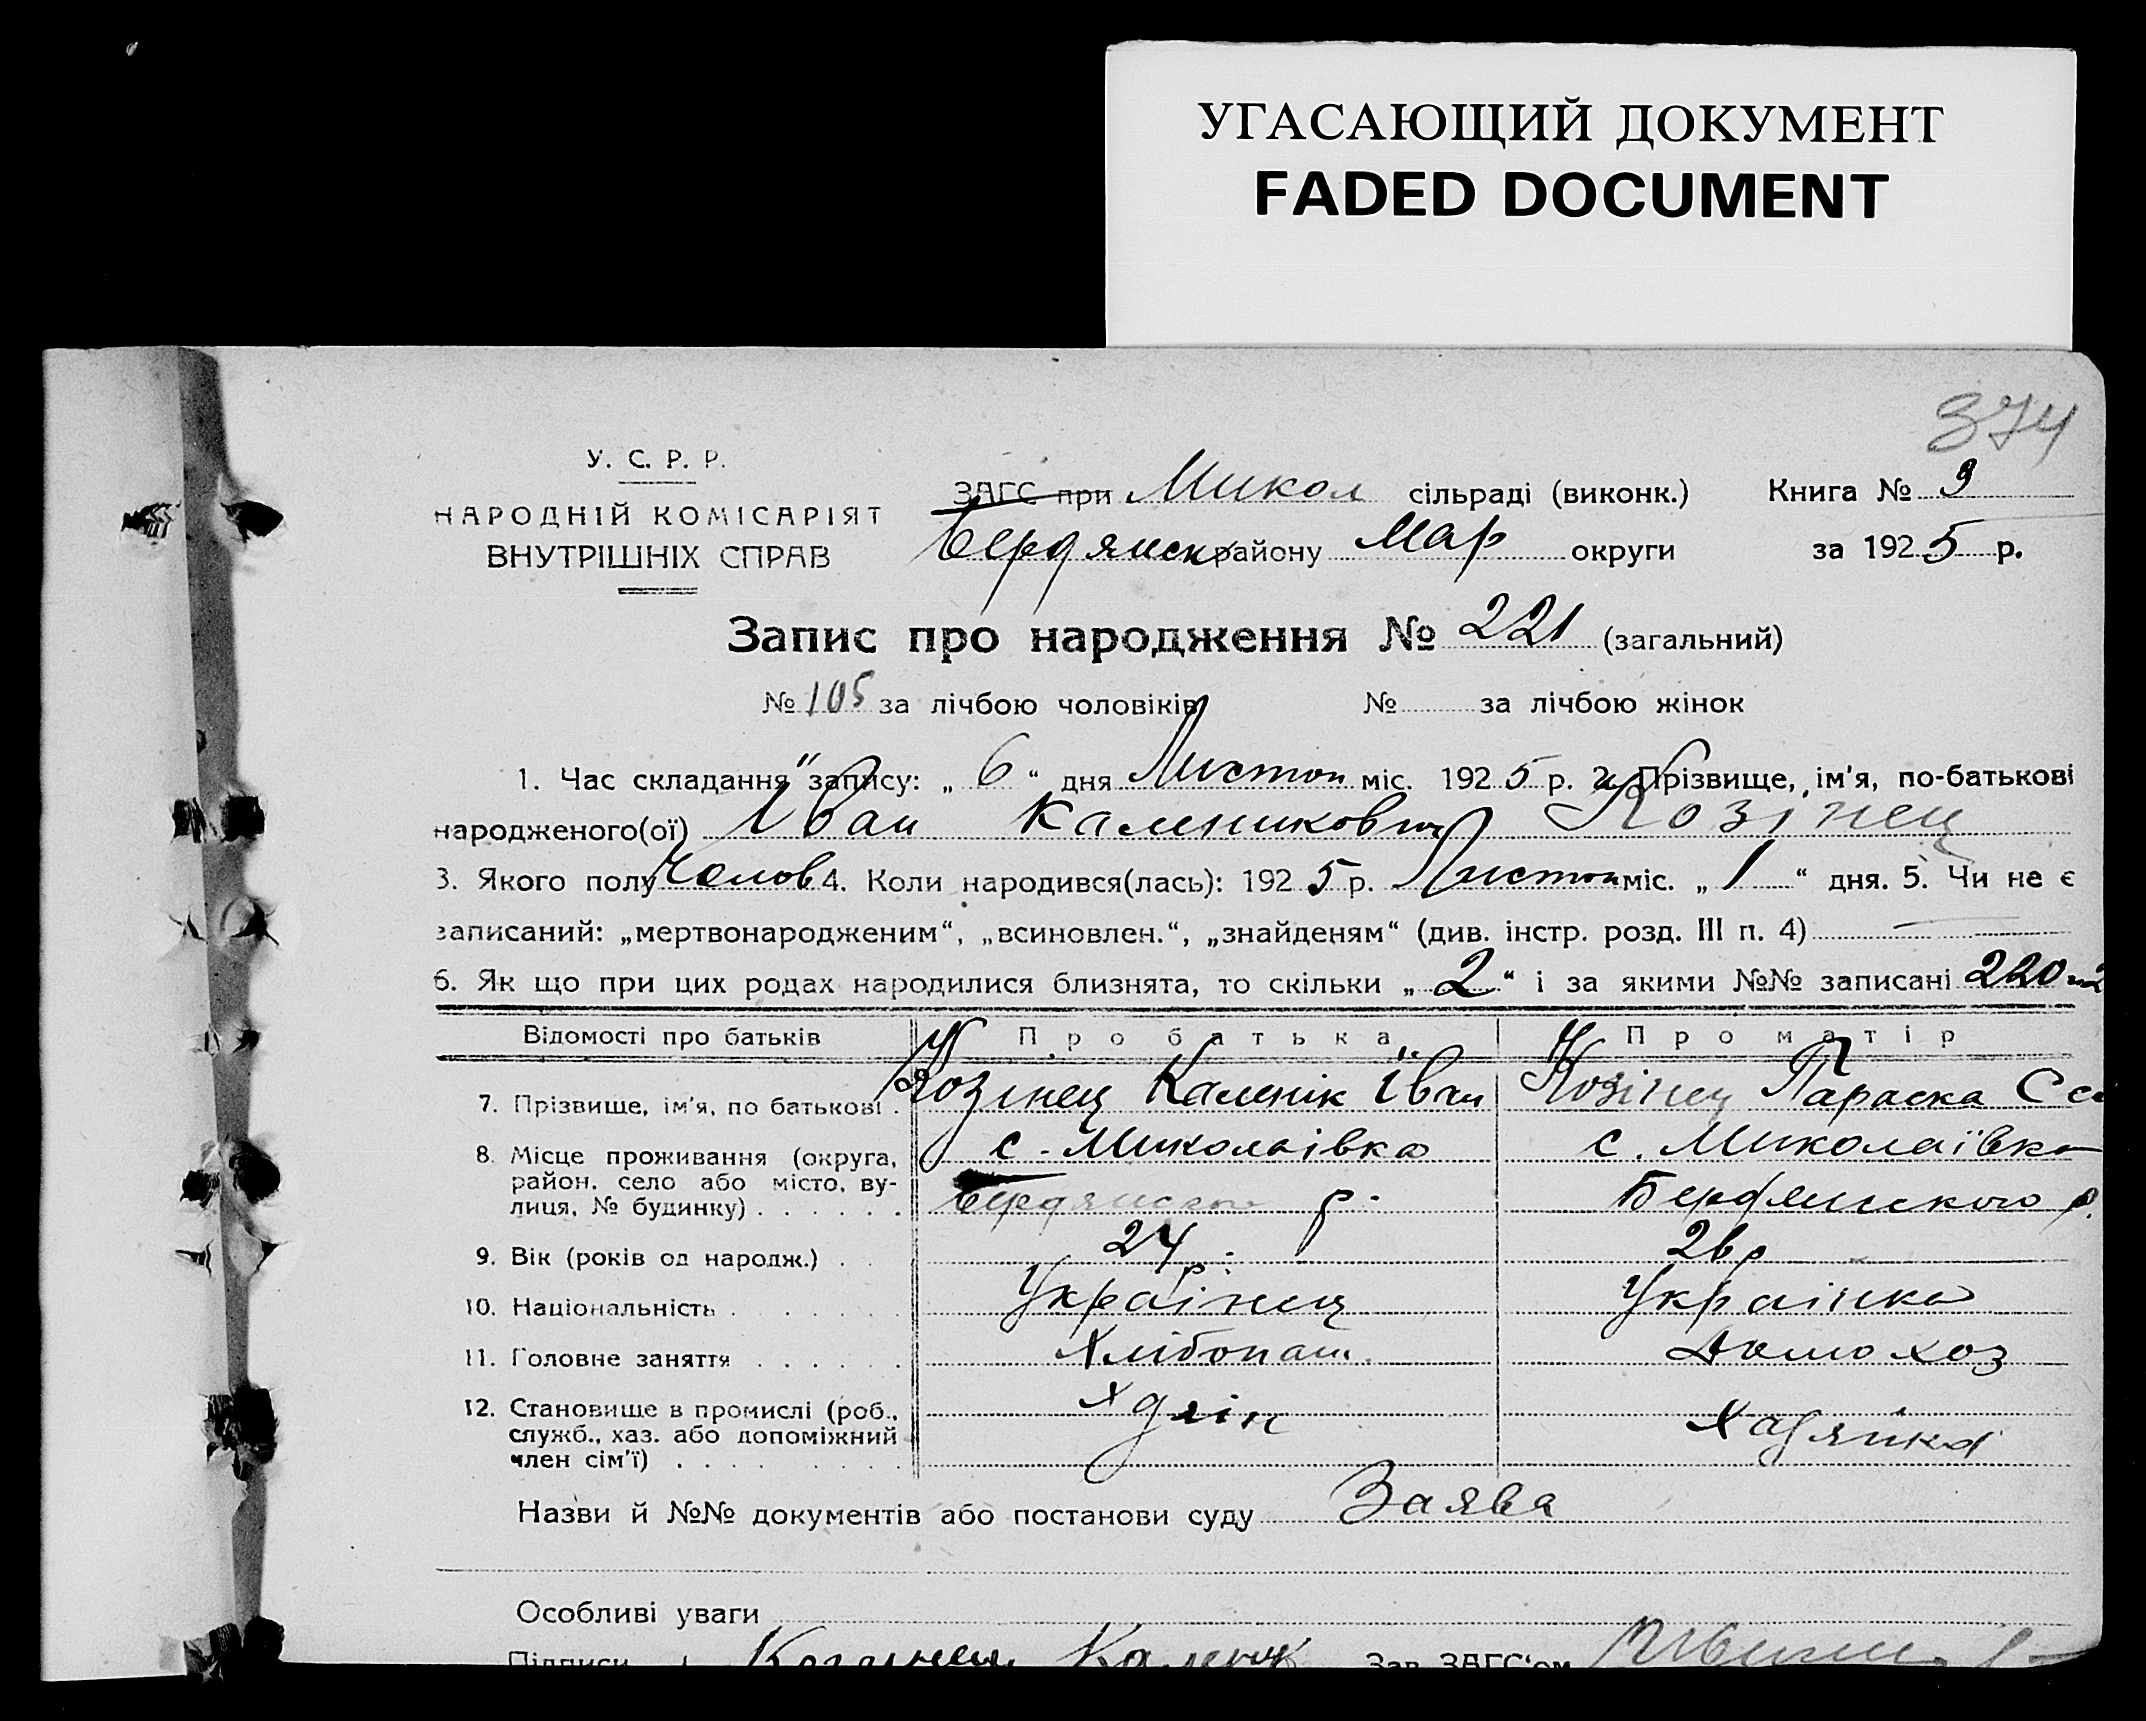 УГАСАЮЩИЙ ДОКУМЕНТ
FADED DOCUMENT
374
У. С. Р. Р.
НАРОДНІЙ КОМІСАРІЯТ
ВНУТРІШНІХ СПРАВ
ЗАГС при Микол сільраді (виконк.) Книга № 3
Бердянск району Мар округи за 1925 р.
Запис про народження № 221 (загальний)
№ 105 за лічбою чоловіків № за лічбою жінок
1. Час складання запису: „ 6 “ дня Листоп міс. 1925 р. 2. Прізвище, ім'я, по-батькові
народженого(ої) Іван Каленикович Козінец
3. Якого полу Чолов 4. Коли народився(лась): 1925 р. Листоп міс. „ 1 “ дня. 5. Чи не є
записаний: „мертвонародженим“, „всиновлен.“, „знайденям“ (див. інстр. розд. III п. 4) —
6. Як що при цих родах народилися близнята, то скільки „ 2 “ і за якими №№ записані 220
Відомості про батьків Про батька Про матір
7. Прізвище, ім'я, по батькові . Козінец Каленік Іван Козінец Параска
8. Місце проживання (округа, район, село або місто, вулиця, № будинку) . . . . . . с. Миколаівка с. Миколаївка
Бердянского р. Бердянского р.
9. Вік (років од народж.) . . 24 р. 26 р
10. Національність . . . . . Українец Українка
11. Головне заняття . . . . . . Хлібопаш. Домохоз
12. Становище в промислі (роб., служб., хаз. або допоміжний член сім'ї) . . . . . . . Хдяін Хадяйка
Назви й №№ документів або постанови суду Заява
Особливі уваги
Підписи Козінец Каленик Зав. ЗАГС'ом